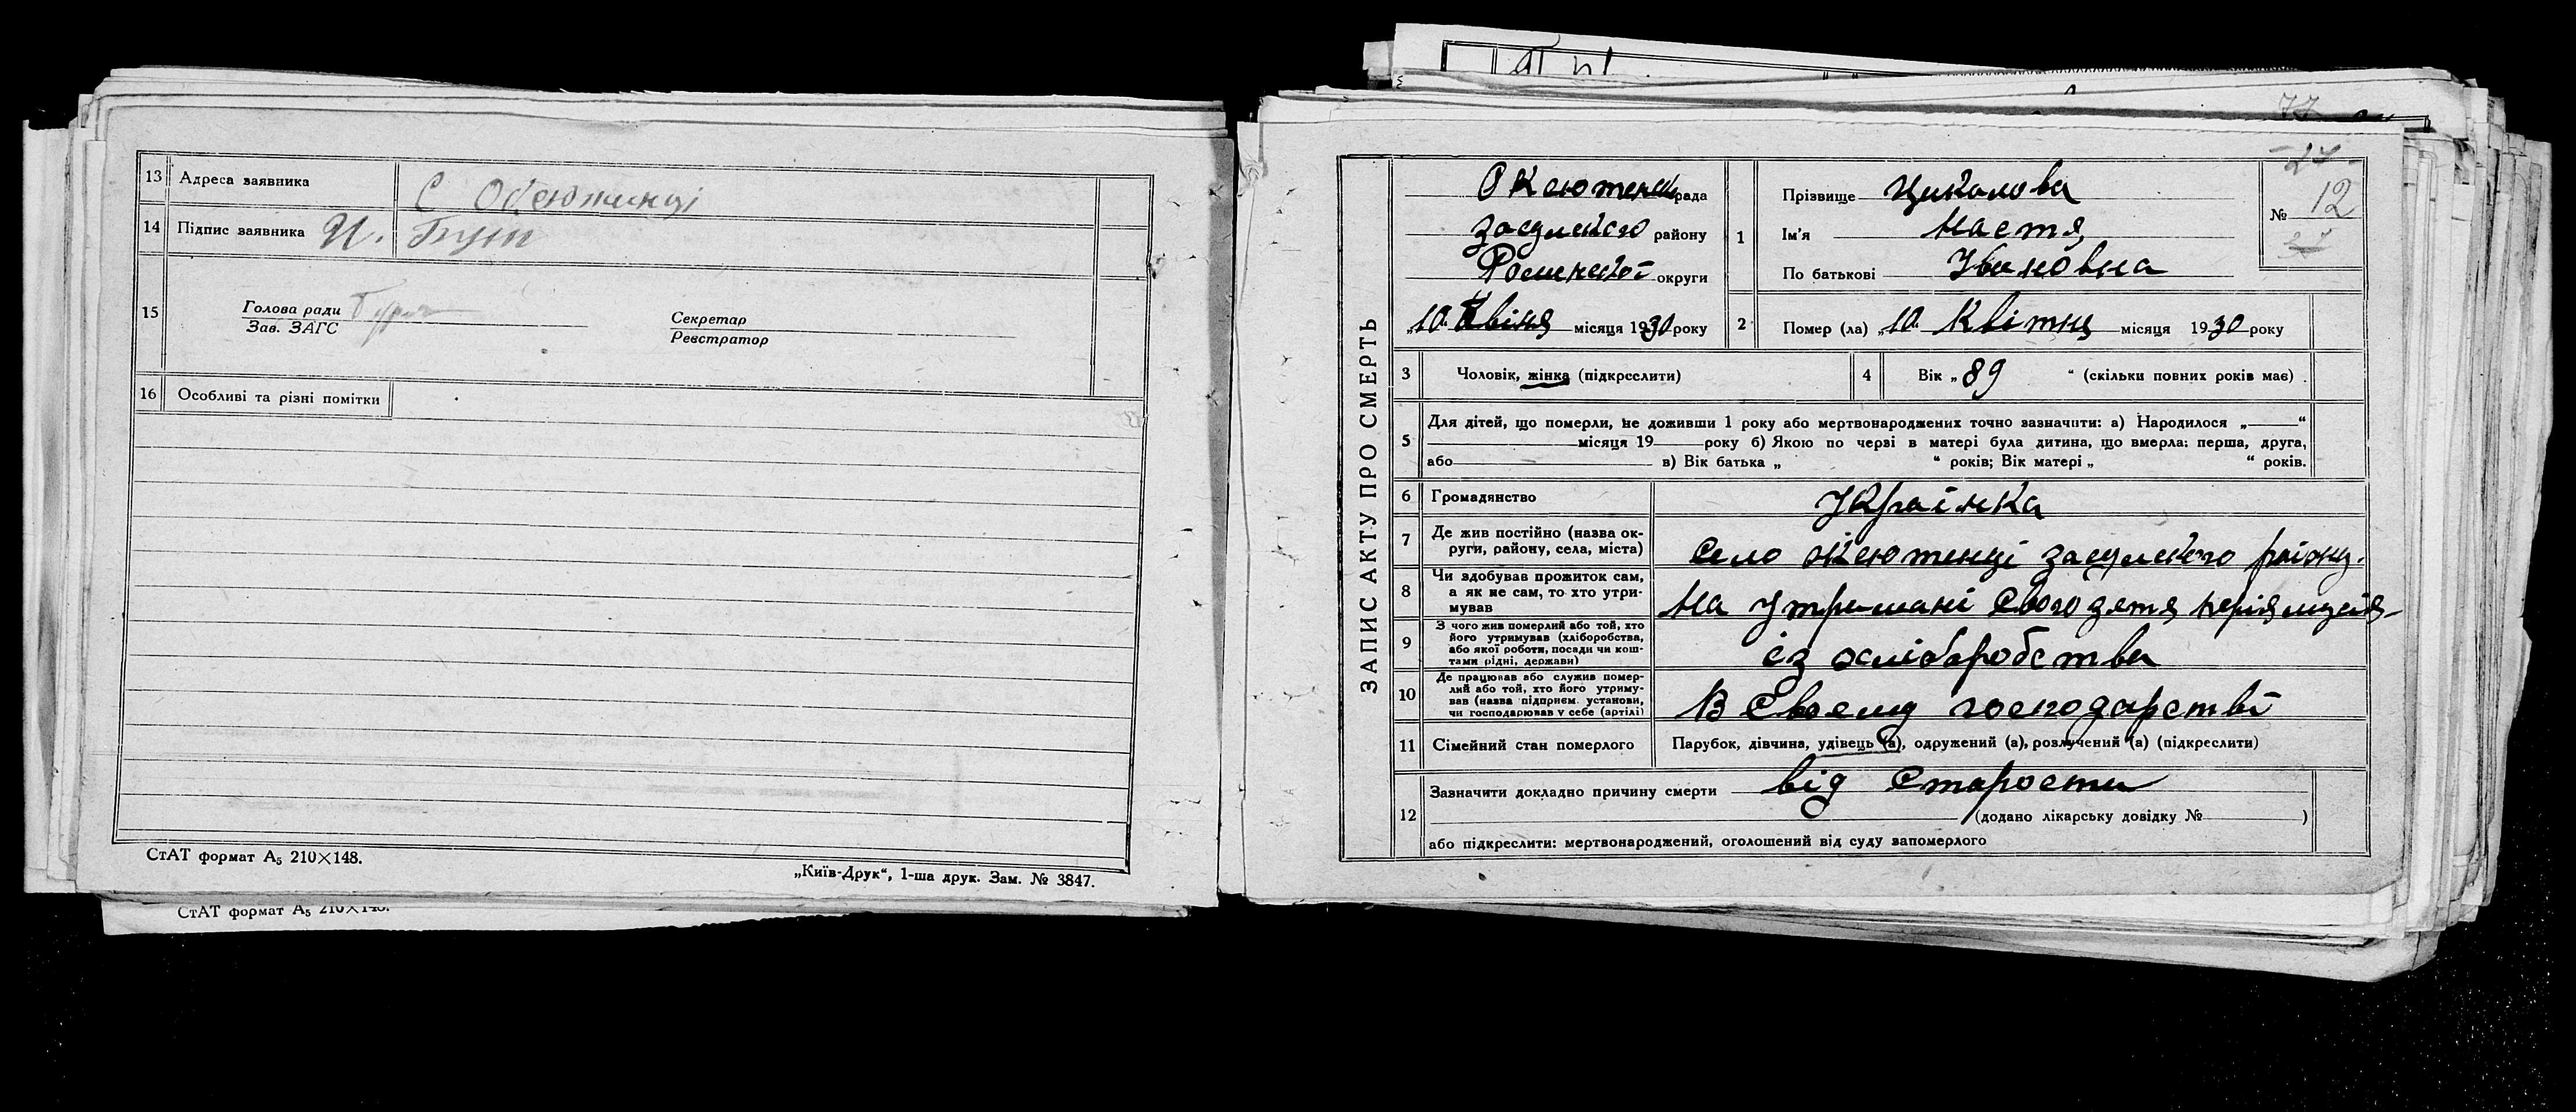 13 Адреса заявника С
14 Підпис заявника И.
15 Голова ради
Зав. ЗАГС
Секретар
Реєстратор
16 Особливі та різні помітки
СтАТ формат А₅ 210×148.
„Київ-Друк“, 1-ша друк. Зам. № 3847.
СтАТ формат А₅ 210×148.
77
ЗАПИС АКТУ ПРО СМЕРТЬ
рада
засульского району
Роменської округи
„10. місяця 1930 року
1 Прізвище
Ім'я Настя
По батькові Ивановна
27
№ 12
2 Помер (ла) „10. Квітня місяця 1930 року
3 Чоловік, жінка (підкреслити)
4 Вік „ 89 “ (скільки повних років має)
5 Для дітей, що померли, не доживши 1 року або мертвонароджених точно зазначити: а) Народилося „ “
місяця 19 року б) Якою по черзі в матері була дитина, що вмерла: перша, друга,
або в) Вік батька „ “ років; Вік матері „ “ років.
6 Громадянство Українка
7 Де жив постійно (назва ок-
руги, району, села, міста)
село засульского району.
8 Чи здобував прожиток сам,
а як не сам, то хто утри-
мував
На утримані свого зятя
9 З чого жив померлий або той, хто
його утримував (хліборобства,
або якої роботи, посади чи кош-
тами рідні, держави)
із хліборобства
10 Де працював або служив помер-
лий або той, хто його утриму-
вав (назва підприєм. установи,
чи господарював у себе (артілі)
В своему господарстві
11 Сімейний стан померлого Парубок, дівчина, удівець (а), одружений (а), розлучений (а) (підкреслити)
12 Зазначити докладно причину смерти від старости
(додано лікарську довідку № )
або підкреслити: мертвонароджений, оголошений від суду запомерлого